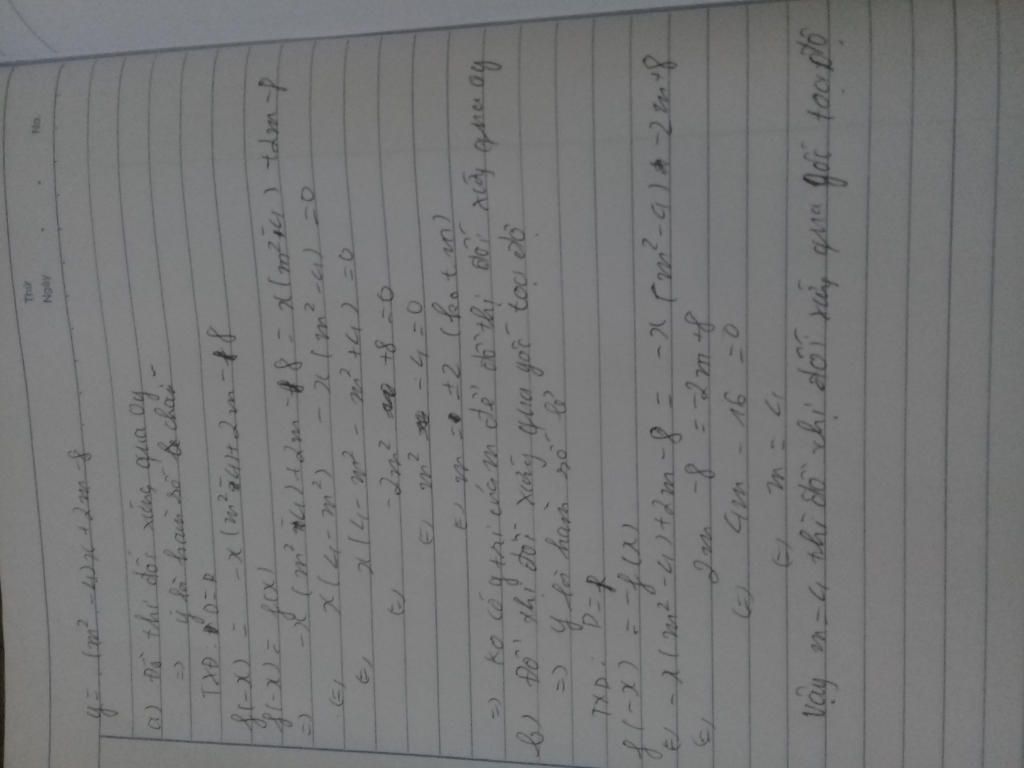 Thứ
Ngày
No.
y = (m² - 4)x + 2m - 8
a) Đồ thị đối xứng qua oy
=> y là hàm số chẵn
TXĐ: D = R
f(-x) = -x(m² - 4) + 2m - 8
f(-x) = f(x)
=> -x(m² - 4) + 2m - 8 = x(m² - 4) + 2m - 8
(=) x(4 - m²) - x(m² - 4) = 0
(=) x(4 - m² - m² + 4) = 0
(=) -2m² + 8 = 0
(=) m² - 4 = 0
(=) m = ±2 (ko t m)
=> ko có giá trị của m để đồ thị đối xứng qua oy
b) Đồ thị đối xứng qua gốc tọa độ
=> y là hàm số lẻ
TXĐ: D = R
f(-x) = -f(x)
(=) -x(m² - 4) + 2m - 8 = -x(m² - 4) - 2m + 8
(=) 2m - 8 = -2m + 8
(=) 4m - 16 = 0
(=) m = 4
Vậy m = 4 thì đồ thị đối xứng qua gốc tọa độ